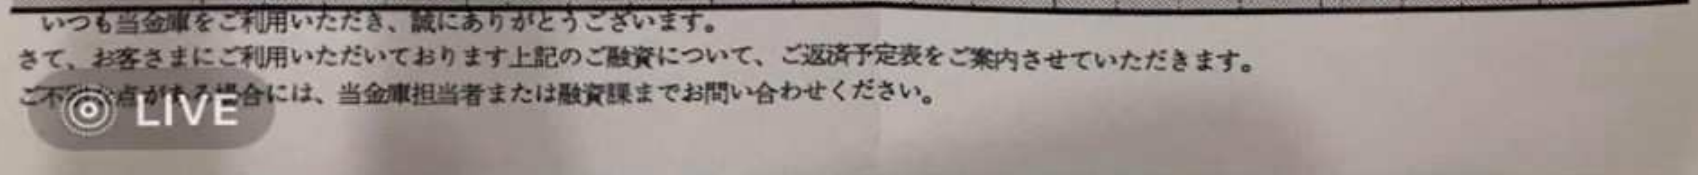 いつも当金庫をご利用いただき、誠にありがとうございます。
さて、お客さまにご利用いただいております上記のご融資について、ご返済予定表をご案内させていただきます。
ご不 点がある場合には、当金庫担当者または融資課までお問い合わせください。
LIVE